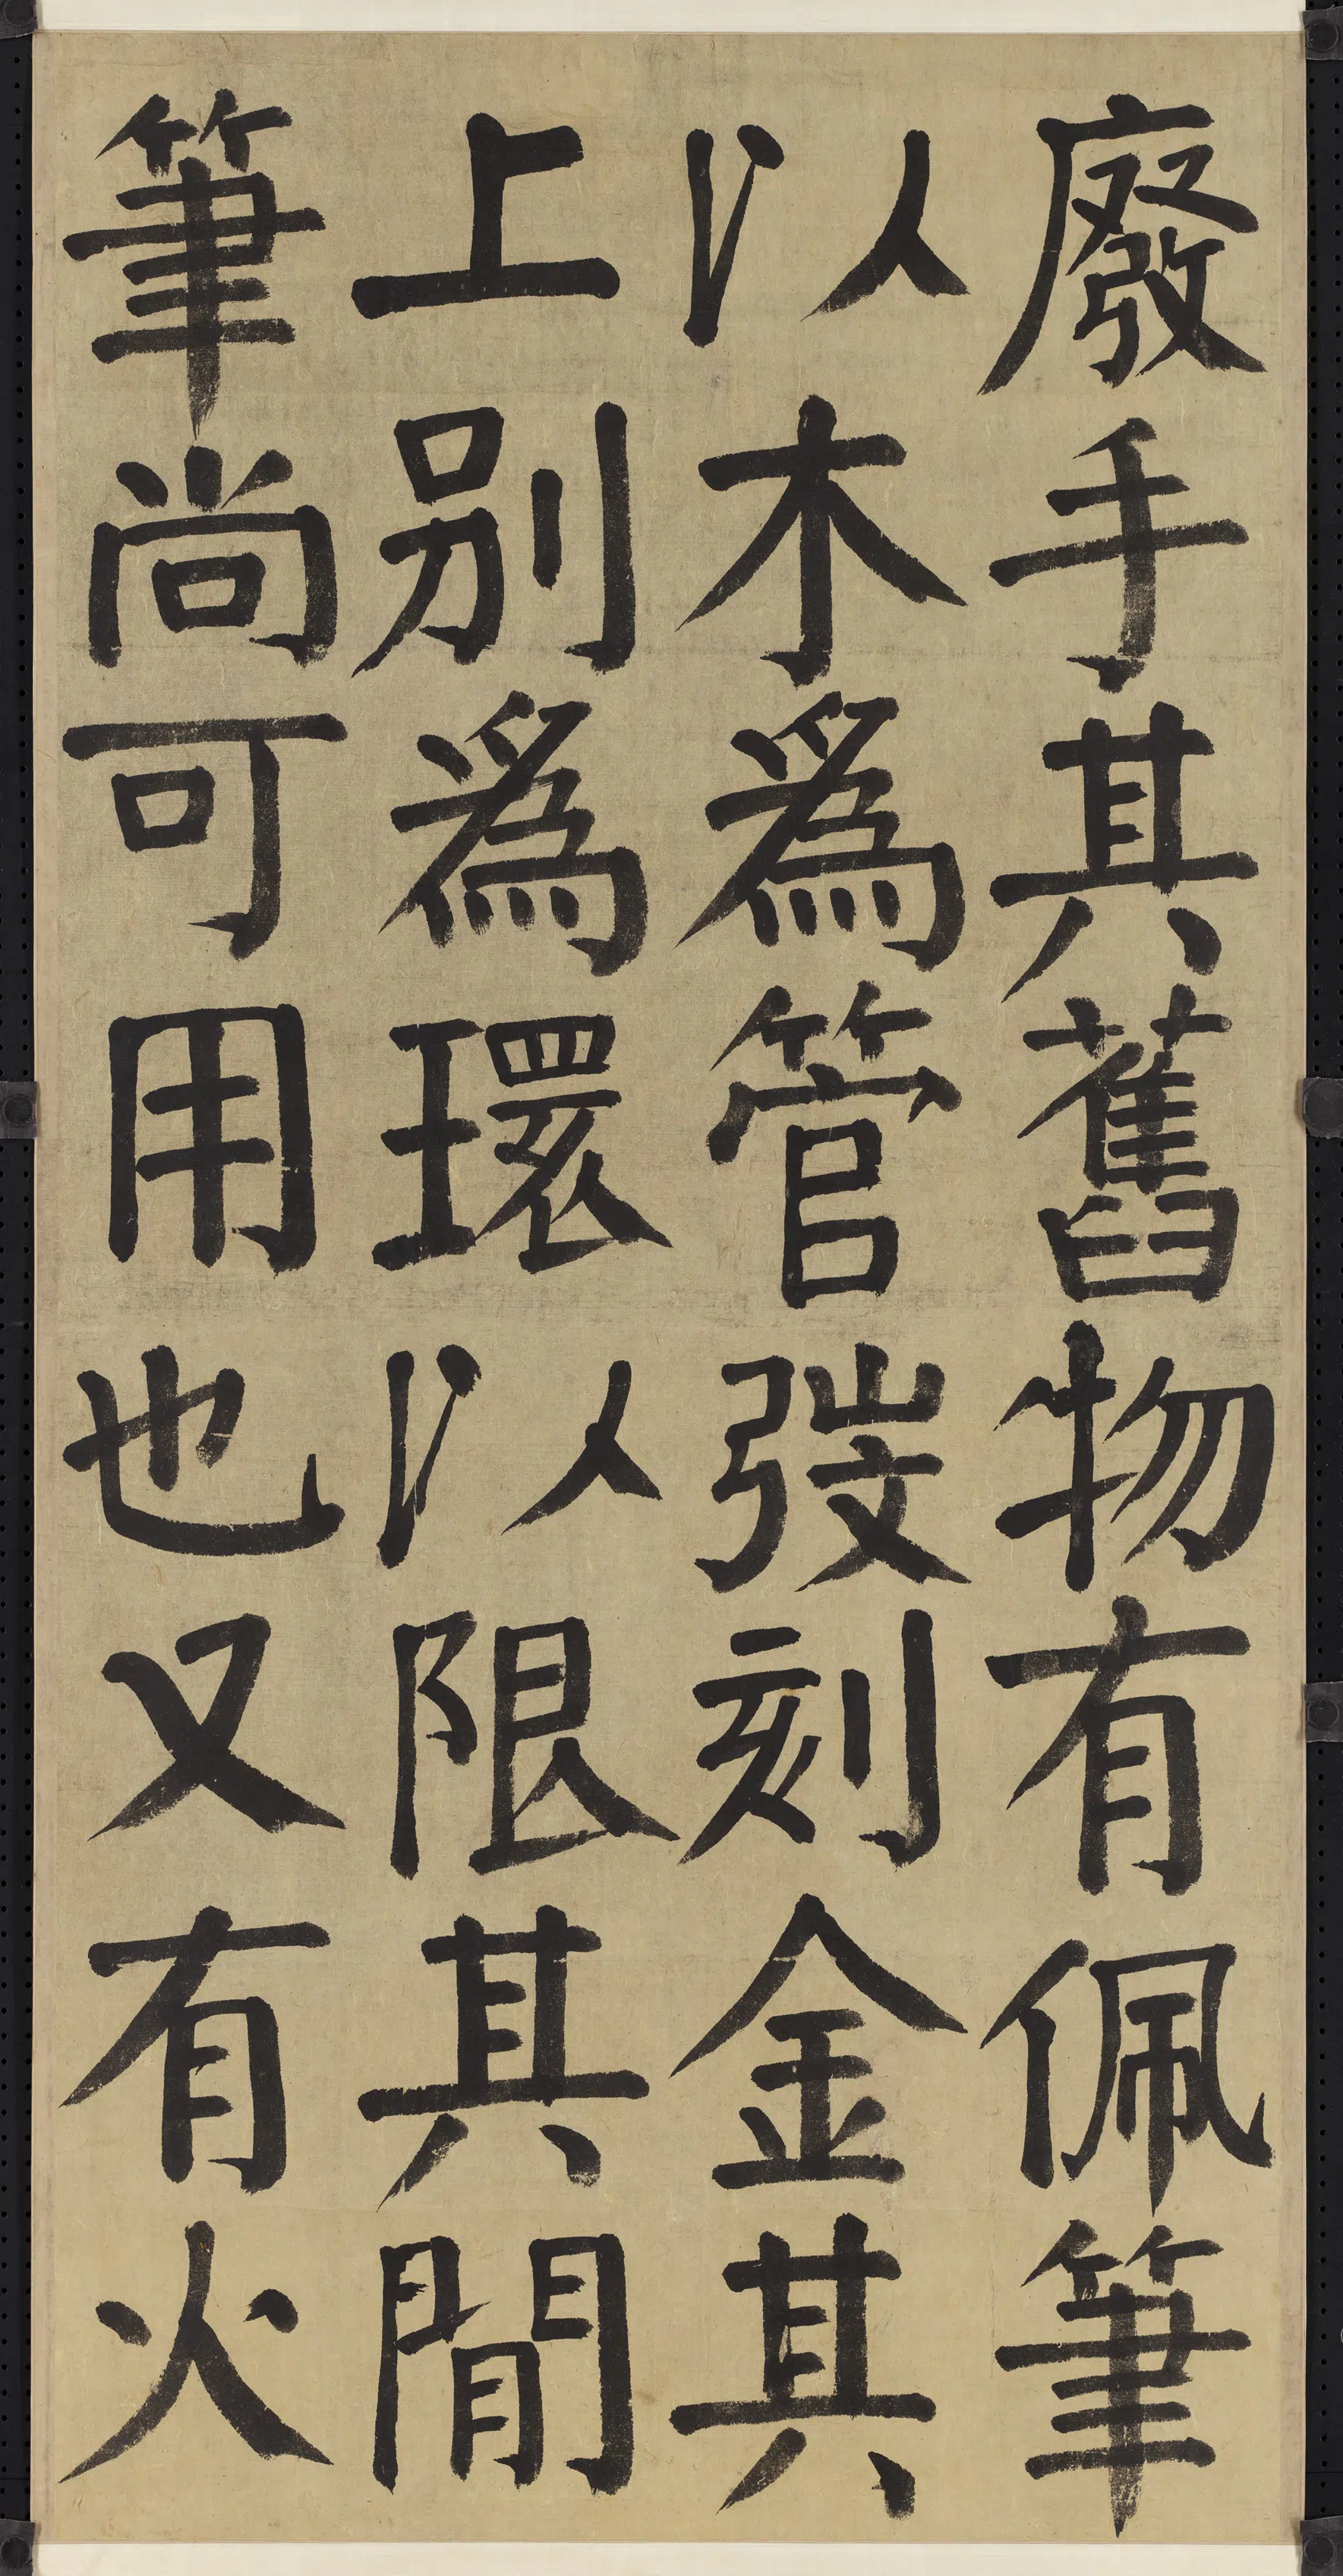 廢手其舊物有佩筆
以木爲管弢刻金其
上別爲環以限其閒
筆尚可用也又有火